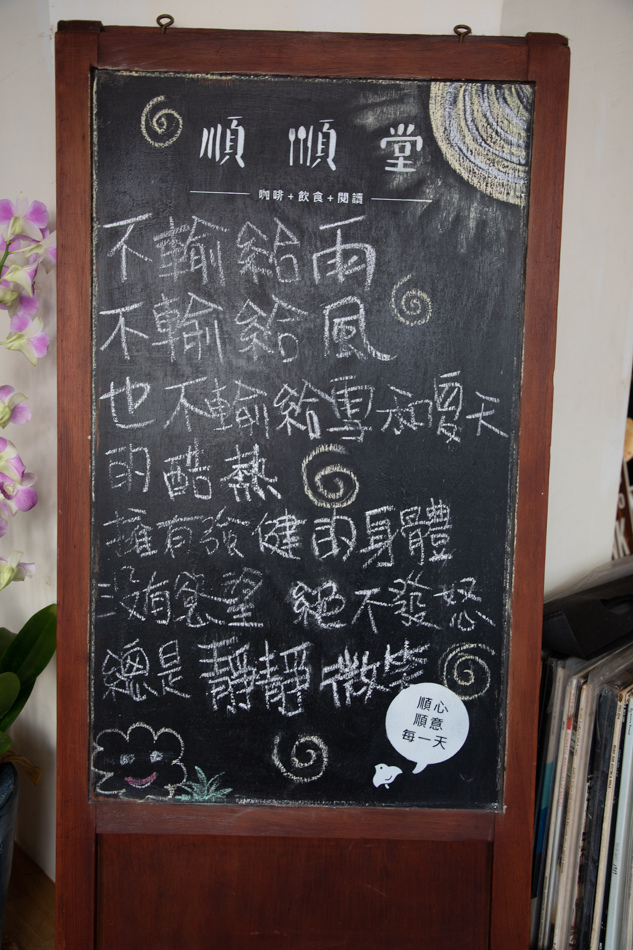 順順堂
咖啡+飲食+閱讀
不輸給雨
不輸給風
也不輸給雪和夏天
的酷熱
擁有強健的身體
沒有慾望 絕不發怒
總是靜靜微笑
順心
順意
每一天